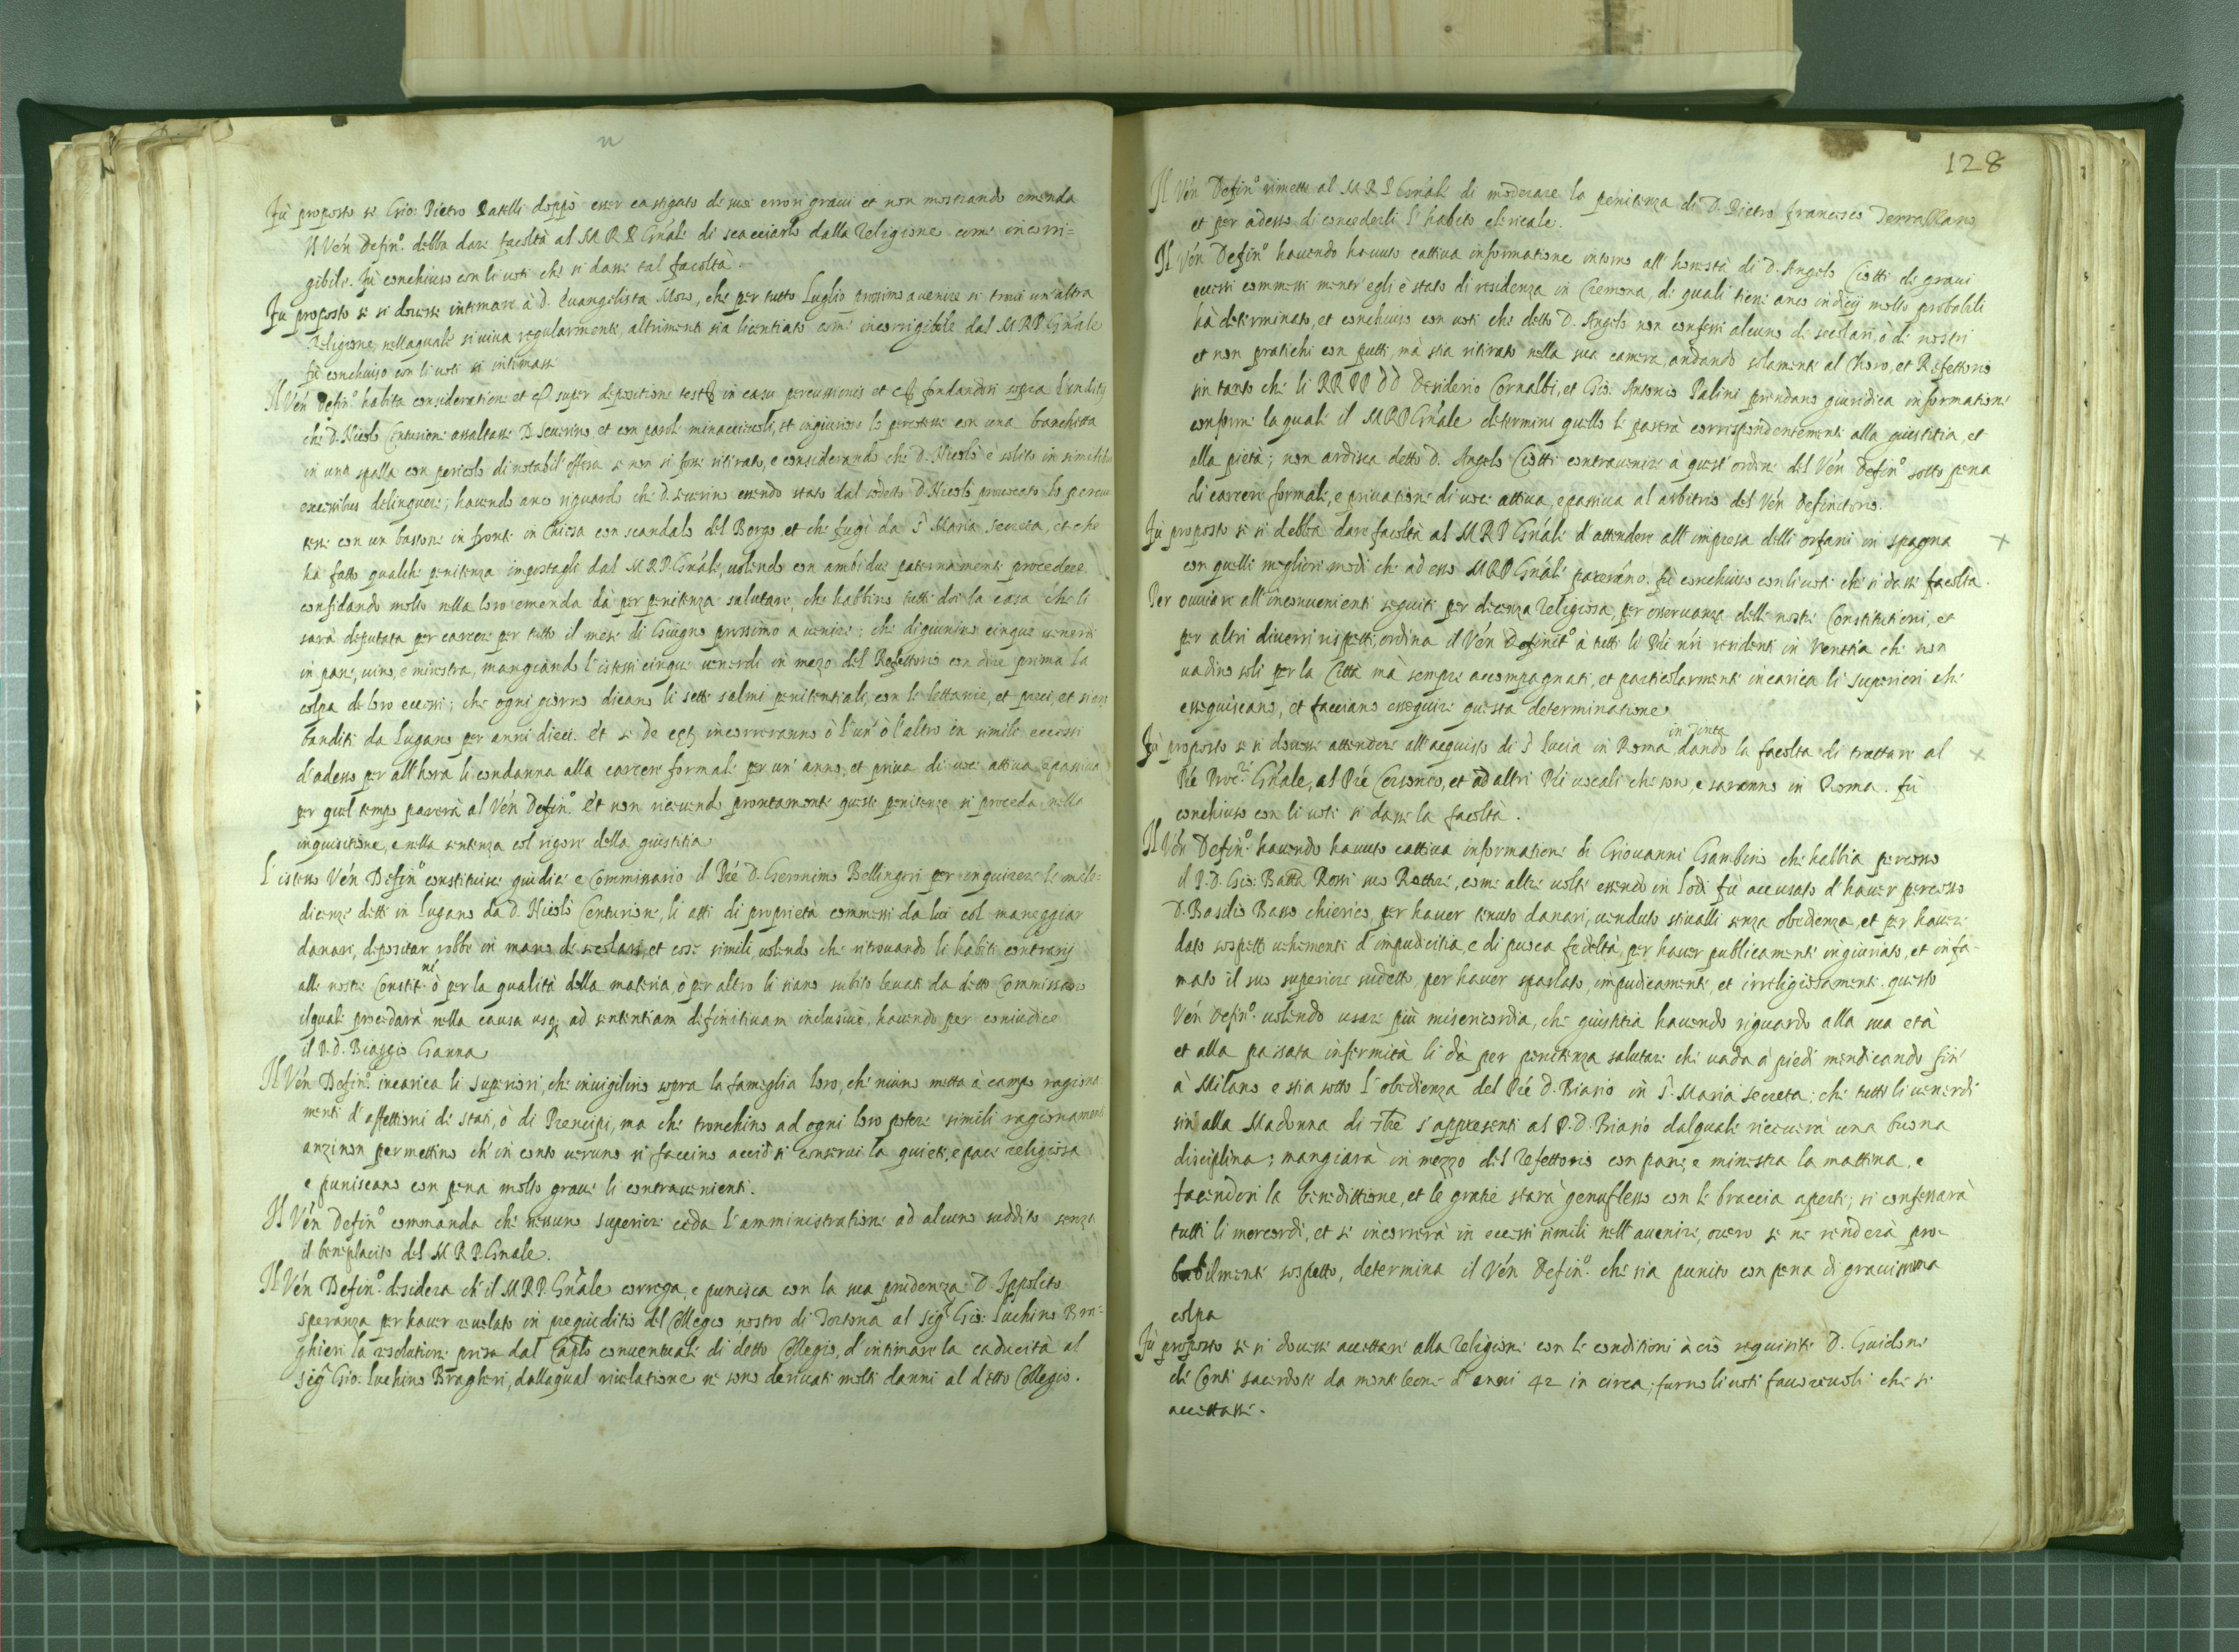 Fù proposto se Gio: Pietro Patelli doppò esser castigato de suoi errori gravi et non mostrando emenda
Il Vén Defin.º debba dare facoltà al M R P Gnále di scacciarlo dalla religione come incorri=
gibile. Fù conchiuso con li voti che si dasse tal facoltà.
Fu proposto se si dovesse intimare à D. Evangelista Moro, che per tutto Luglio prossimo avenire si trovi un'altra
Religione, nellaquale si viva regularmente, altrimenti sia licentiato come incorrigibile dal M R P Gnále
fù conchiuso con li voti si intimasse
Il Vén Defin.º habita consideratione et super depositione in casu percussionis et fondandosi sopra
che D. Nicolò Centurione assaltasse D. Severino, et con parole minaccievoli, et ingiuriose lo percotesse con una bacchetta
in una spalla con pericolo di notabil'offesa se non si fosse ritirato, e considerando che D. Nicolò è solito in similibus
excessibus delinquere; havendo anco riguardo che D. Severino essendo stato dal sodetto D. Nicolò provocato lo percu
tesse con un bastone in fronte in Chiesa con scandalo del Borgo, et che fugì da S. Maria Secreta, et che
hà fatto qualche penitenza impostagli dal M R P. Gnále, volendo con ambidue paternamente procedere
confidando molto nella loro emenda dà per penitenza salutare, che habbino tutti doi la casa che li
sarà deputata per carcere per tutto il mese di Giugno prossimo a venire; che digiunino cinque venerdì
in pane, vino, e minestra, mangiando l'istessi cinque venerdì in mezo del Refettorio con dire prima la
colpa de loro eccessi; che ogni giorno dicano li sette salmi penitentiali, con le lettanie, et preci, et siano
banditi da Lugano per anni dieci. Et se de incorreranno ò l'un' ò l'altro in simili eccessi
d'adesso per all'hora li condanna alla carcere formale per un' anno, et priva di voce attiva e passiva
per quel tempo parerà al Vén Defin.º Et non ricevendo prontamente queste penitenze si proceda nella
inquisitione, e nella sentenza col rigore della giustitia
L'istesso Vén Defin.º constituisce giudice e Commissario il Pré D. Geronimo Bellingeri per inquirere le male=
dicenze dette in Lugano da D. Nicolò Centurione, li atti di proprietà commessi da lui col maneggiar
danari, depositar robbe in mano de secolari, et cose simili volendo che ritrovando li habiti contrarij
alle nostre Constit.ni ò per la qualità della materia ò per altro li siano subito levati da detto Commissario
ilquale procedarà nella causa usq ad sententiam difinitivam inclusivè, havendo per coniudice
il P. D. Biaggio Ganna
Il Vén Defin.º incarica li Superiori, che invigilino sopra la fameglia loro, che niuno metta à campo ragiona
menti d'affettioni di stati, ò di Prencipi, ma che tronchino ad ogni loro potere simili ragionamenti
anzi non permettino ch'in conto veruno si faccino acciò si conservi la quiete, e pace religiosa
e puniscano con pena molto grave li contravenienti.
Il Vén Defin.º commanda che nessuno Superiore ceda l'amministratione ad alcuno suddito senza
il beneplacito del M R P. Gnale.
Il Vén Defin.º desidera ch'il M R P. Gnále correga, e punisca con la sua prudenza D. Ippolito
Speranza per haver rivelato in pregiuditio del Collegio nostro di Tortona al sig.r Gio: Luchino Bra=
ghieri la resolutione presa dal Caplo conventuale di detto Collegio, d'intimare la caducità al
sig.r Gio: Luchino Braghieri, dallaqual rivelatione ne sono derivati molti danni al detto Collegio.
128
Il Vén Defin.º rimette al M R P Gnále di moderare la penitenza di D. Pietro Francesco Terrallano
et per adesso di concederli l'habito chericale.
Il Vén Defin.º havendo havuto cattiva informatione intorno all'honestà di D. Angelo Ciotti di gravi
eccessi commessi mentr'egli è stato di residenza in Cremona, di quali tiene anco indicij molto probabili
hà determinato, et conchiuso con voti che detto D. Angelo non confessi alcuno de secolari, ò de nostri
et non pratichi con putti, mà stia ritirato nella sua camera, andando solamente al Choro, et Refettorio
sin tanto che li RR PP DD Desiderio Cornalbi, et Gio: Antonio Palini prendano giuridica informatione
conforme la quale il M R P Gnále determini quello le parerà corrispondentemente alla giustitia, et
alla pietà; non ardisca detto D. Angelo Ciotti contravenire à quest'ordine del Vén Defin.º sotto pena
di carcere formale, e privatione di voce attiva, e passiva al arbitrio del Vén Definitorio.
Fù proposto se si debba dare facoltà al M R P Gnále d'attendere all'impresa delli orfani in Spagna
con quelli megliori modi che ad esso M R P Gnále pareráno. fù conchiuso con li voti che si desse facoltà.
Per ovviare all'inconvenienti seguiti per decenza religiosa, per osservanza delle nostre Constitutioni, et
per altri diversi rispetti, ordina il Vén Definit.º à tutti li Pri nri residenti in Venetia che non
vadino soli per la Città mà sempre accompagnati, et particolarmente incarica li Superiori che
esseguiscano, et facciano esseguire questa determinatione
Fù proposto se si dovesse attendere all'acquisto di S. Lucia in Roma in Tinta dando la facoltà di trattare al
Pré Proc.re Gnále, al Pré Cerchiaro, et ad altri Pri vocali che sono, e saranno in Roma. fù
conchiuso con li voti si dasse la facoltà.
Il Vén Defin.º havendo havuto cattiva informatione di Giovanni Gambino che habbia percosso
il P. D. Gio: Batta Rossi suo Rettore, come altre volte essendo in Lodi fù accusato d'haver percosso
D. Basilio Basso chierico, per haver tenuto danari, venduto stivalli senza obedienza, et per havere
dato sospetti vehementi d'impudicitia, e di puoca fedeltà, per haver publicamente ingiuriato, et infa-
mato il suo superiore sudetto, per haver sparlato, impudicamente, et irreligiosamente questo
Vén Defin.º volendo usare più misericordia, che giustitia havendo riguardo alla sua età
et alla passata infermità li dà per penitenza salutare che vada à piedi mendicando fin'
à Milano e stia sotto l'obedienza del Pré D. Biasio in S. Maria Secreta: che tutti li venerdì
sin alla Madonna di 7bre s'appresenti al P. D. Biasio dalquale riceverà una buona
disciplina; mangiarà in mezzo del refettorio con pane, e minestra la mattina, e
facendosi la benedittione, et le gratie starà genuflesso con le braccia aperte; si confessarà
tutti li mercordì, et se incorrerà in eccessi simili nell'avenire, overo se ne renderà pro-
babilmente sospetto, determina il Vén Defin.º che sia punito con pena di gravissima
colpa
Fù proposto se si dovesse accettare alla religione con le conditioni à ciò requisite D. Guidone
de Conti sacerdote da monte leone d'anni 42 in circa; furno li voti favorevoli che si
accettasse.